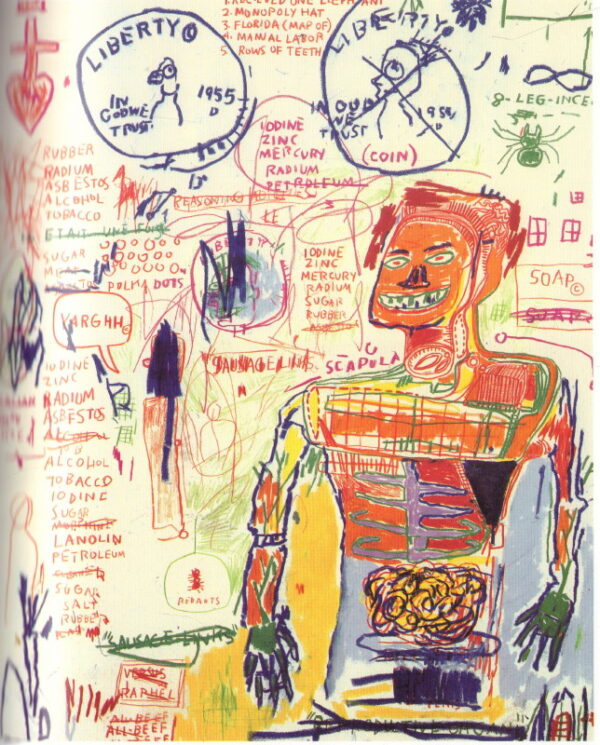 2. MONOPOLY HAT
3. FLORIDA (MAP OF)
4. MANUAL LABOR
5. ROWS OF TEETH
LIBERTY©
1955
D
IN
GODWE
TRUST
LIBERTY©
IN
WE
TRUST
195
D
(COIN)
8-LEG-INCE
IODINE
ZINC
MERCURY
RADIUM
PETROLEUM
RUBBER
RADIUM
ASBESTOS
ALCOHOL
TOBACCO
REASONING
ETAIT UNE FOIS
SUGAR
POLKA DOTS
IODINE
ZINC
MERCURY
RADIUM
SUGAR
RUBBER
SOAP©
SOAP
YARGHH©
"SAUSAGE LINKS
SCAPULA
IODINE
ZINC
RADIUM
ASBESTOS
ALCOHOL
ALCOLOL
TOBACCO
IODINE
SUGAR
MORPHINE
LANOLIN
PETROLEUM
SUGAR
SALT
RUBBER
RED ANTS
"SAUSAGE LINKS
VERSUS
RAPHEL
ALL-BEEF
ALL-BEEF